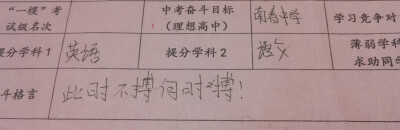 “一模”考 中考奋斗目标 学习竞争对
试级名次 （理想高中）
提分学科1 英语 提分学科2 语文 薄弱学科
求助同学
斗格言 此时不搏何时搏！